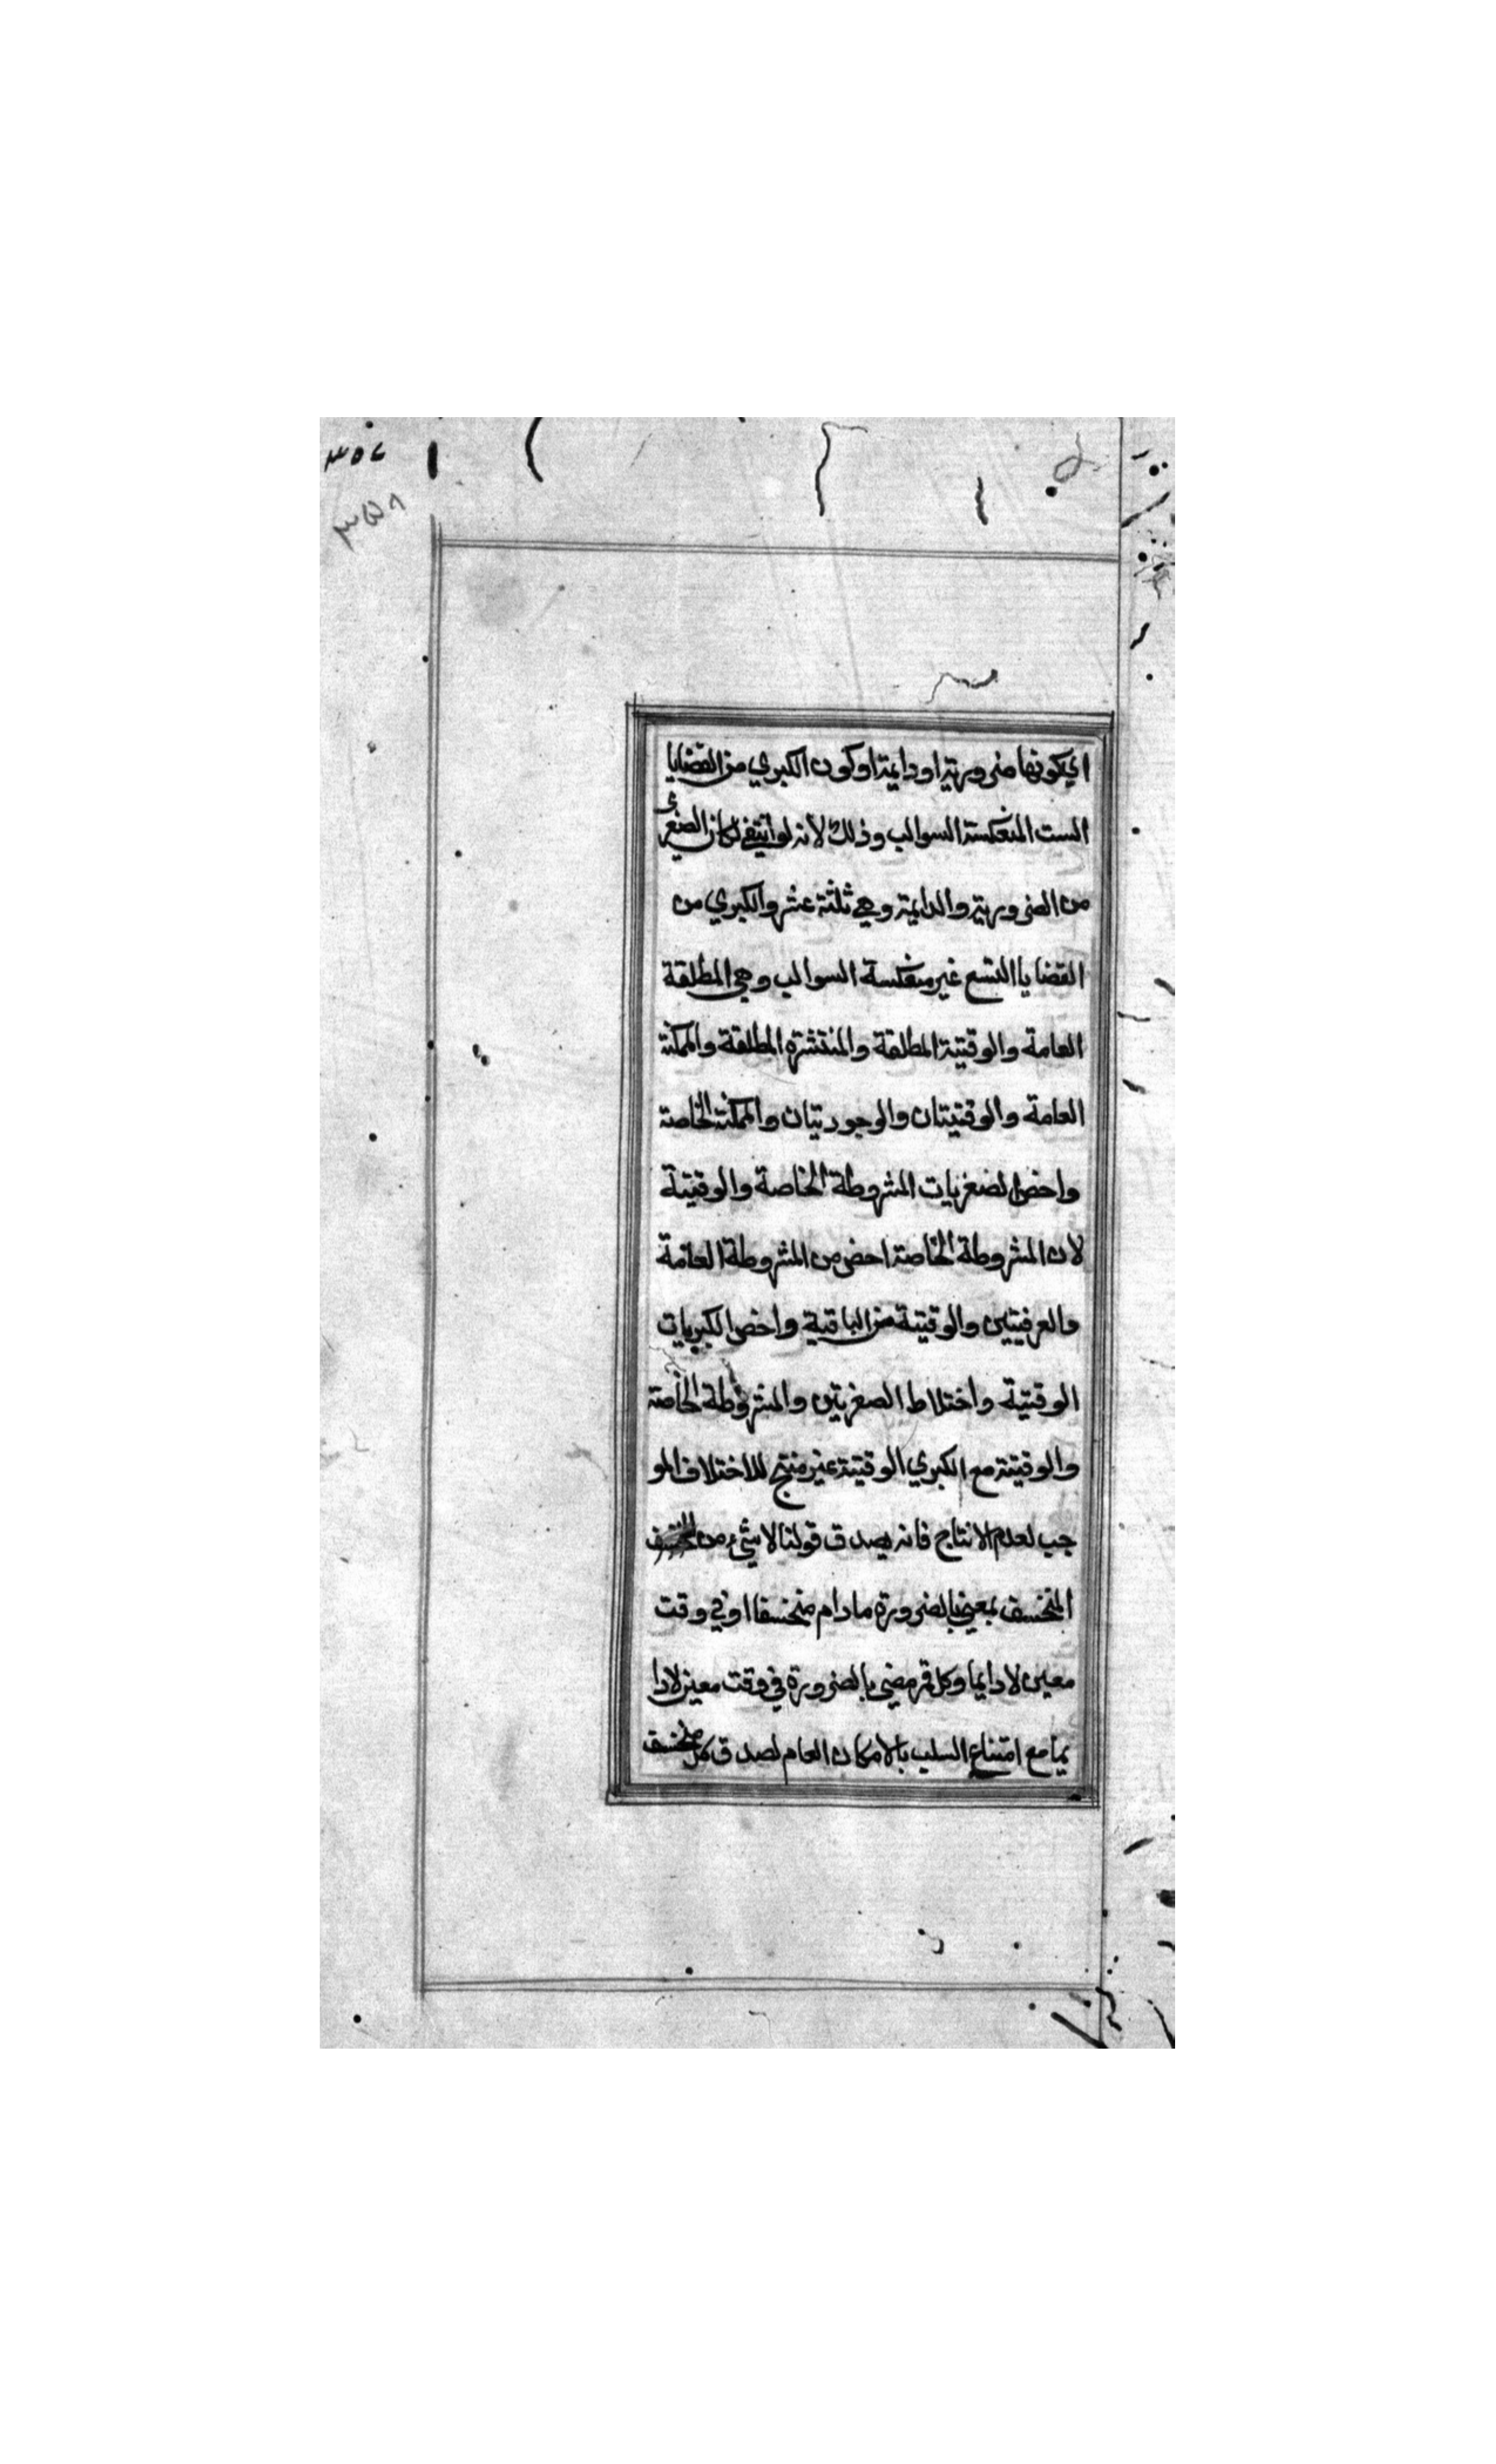 ٣٥٧
٣٥٨
اي بكونها ضرورية او دايمة او كون الكبري من القضايا
الست المنعكسة السوالب وذلك لانه لو انتفي لكان الصغرى
من الضرورية والدايمة وهي ثلثة عشر والكبري من
القضايا التسع غير منعكسة السوالب وهي المطلقة
العامة والوقتية المطلقة والمنتشرة المطلقة والممكنة
العامة والوقتيتان والوجوديتان والممكنة الخاصة
واخص الصغريات المشروطة الخاصة والوقتية
لان المشروطة الخاصة اخص من المشروطة العامة
والعرفيتين والوقتية من الباقية واخص الكبريات
الوقتية واختلاط الصغريتين والمشروطة الخاصة
والوقتية مع الكبري الوقتية غير منتج للاختلاف المو
جب لعدم الانتاج فانه يصدق قولنا لا شيء من
المنخسف بمعني بالضرورة مادام منخسفا او في وقت
معين لا دايما وكل قمر مضي بالضرورة في وقت معين لا دا
يما مع امتناع السلب بالامكان العام لصدق كل منخسف